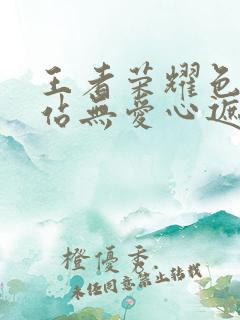 王者荣耀色
佔無愛心遮
橙優秀.
未经同意禁止转载